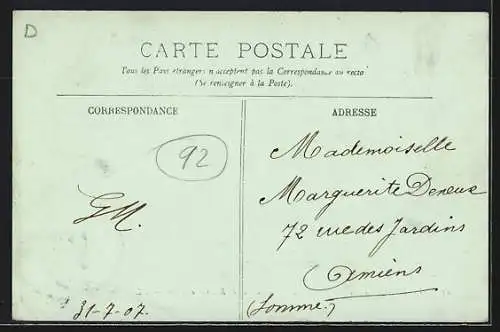 D
CARTE POSTALE
Tous les Pays étrangers n'acceptent pas la Correspondance au recto
(Se renseigner à la Poste).
CORRESPONDANCE
ADRESSE
92
Mademoiselle
Marguerite
72 rue des Jardins
Amiens
(Somme)
GM.
31-7-07